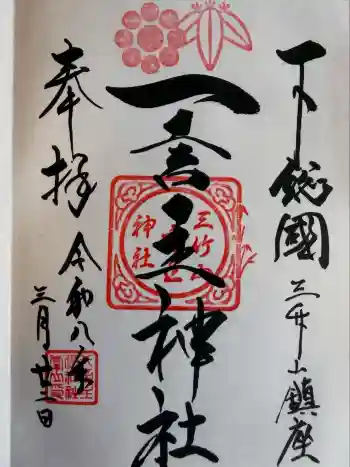 下総國
三竹山鎮座
一言主神社
三竹
神社
奉拝
令和八年
三月廿二日